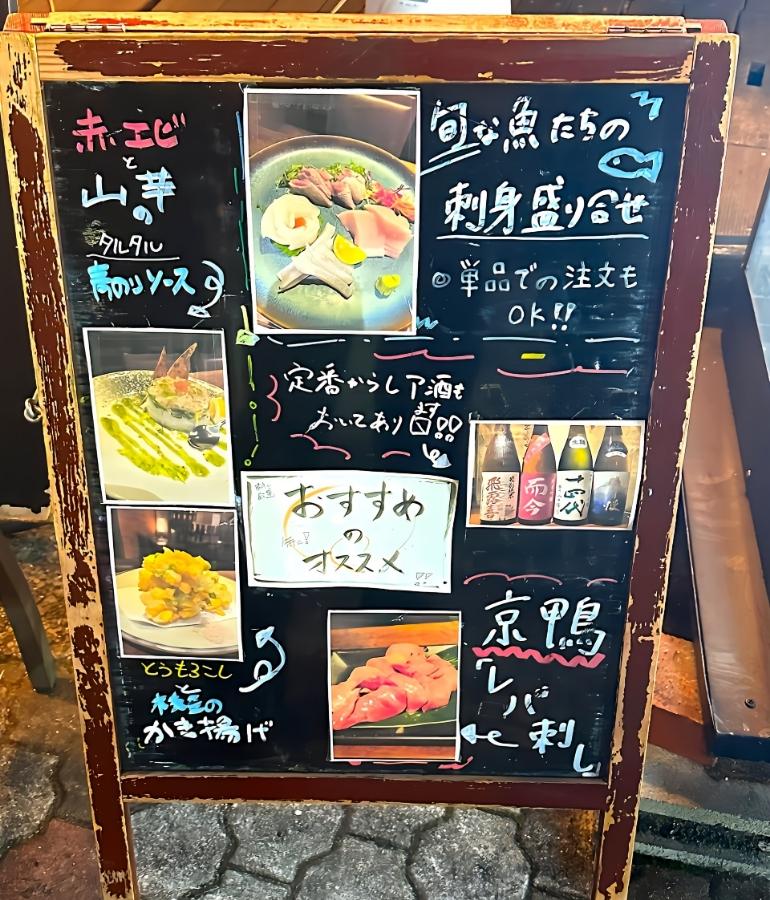 赤エビ
と
山芋
の
タルタル
青のりソース
旬な魚たちの
刺身盛り合せ
◎単品での注文も
OK!!
定番からレア酒も
おいてあります!!
飛露喜
而今
十四代
おすすめ
の
オススメ
とうもろこし
と
枝豆の
かき揚げ
京鴨
レバ
刺し